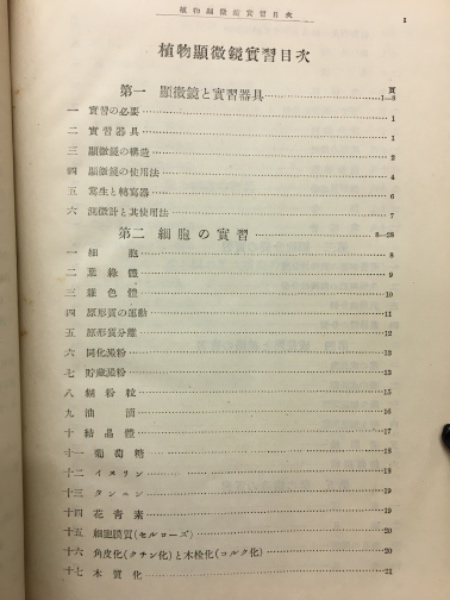 植物顯微鏡實習目次
1
植物顯微鏡實習目次
頁
第一 顯微鏡と實習器具 1—8
一 實習の必要 1
二 實習器具 1
三 顯微鏡の構造 2
四 顯微鏡の使用法 4
五 寫生と轉寫器 6
六 測微計と其使用法 7
第二 細胞の實習 8—28
一 細胞 8
二 葉綠體 9
三 雜色體 10
四 原形質の運動 11
五 原形質分離 12
六 同化澱粉 13
七 貯藏澱粉 13
八 糊粉粒 15
九 油滴 16
十 結晶體 17
十一 葡萄糖 18
十二 イヌリン 18
十三 タンニン 19
十四 花青素 19
十五 細胞膜質(セルローズ) 20
十六 角皮化(クチン化)と木栓化(コルク化) 20
十七 木質化 21